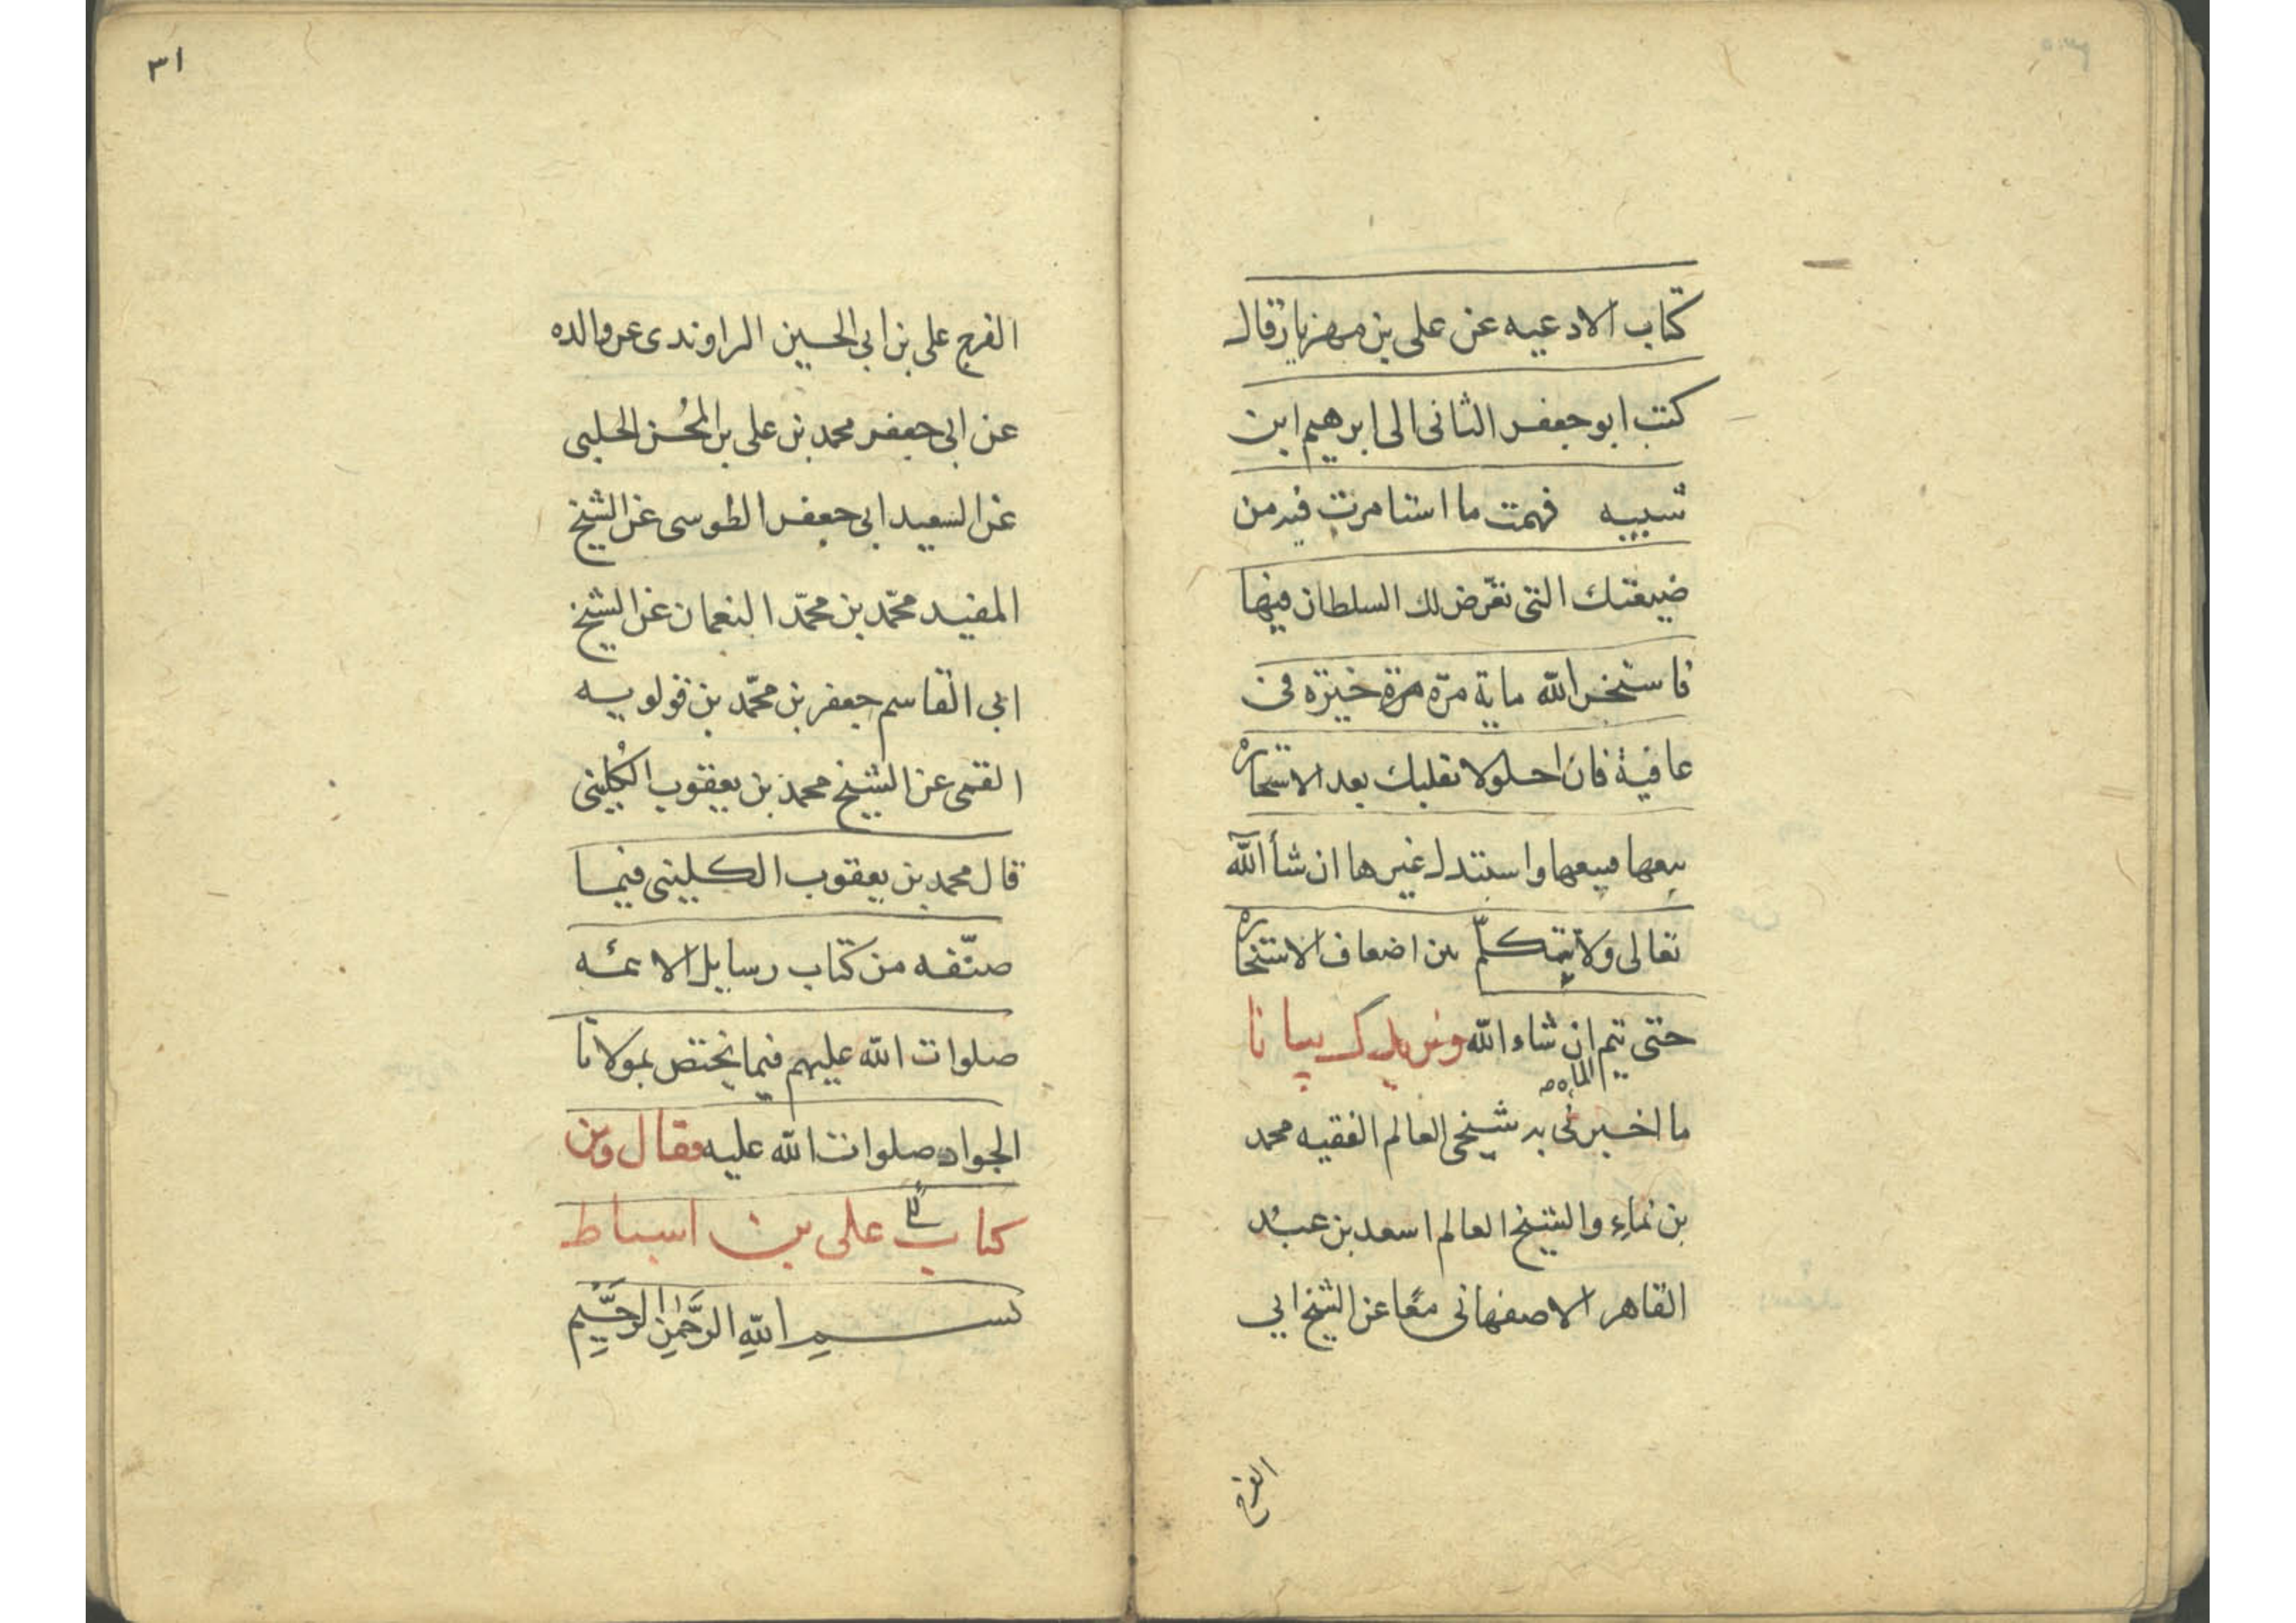 كتاب الادعيه عن على بن مهزيار قال
كتب ابو جعفر الثانى الى ابرهيم ابن
شيبه فهمت ما استامرت فيه من
ضيعتك التى تعرّض لك السلطان فيها
فاستخر الله ماية مرّه خيرة فى
عافية فان احلولا بقلبك بعد الاستخاره
بيعها فبيعها واستبدل غيرها ان شأ الله
تعالى ولا تتكلّم بين اضعاف الاستخاره
حتى تتم ان شاء الله ونزيدك بيانا
الماه
ما اخبرنى به شيخى العالم الفقيه محمد
بن نماء والشيخ العالم اسعد بن عبد
القاهر الاصفهانى معًا عن الشيخ ابي
الفرج
٣١
الفرج على بن ابي الحسين الراوندى عن والده
عن ابى جعفر محمد بن على بن المحُسن الحلبى
عن السعيد ابى جعفر الطوسى عن الشيخ
المفيد محمّد بن محمّد النعمان عن الشيخ
ابى القاسم جعفر بن محمّد بن قولويه
القمى عن الشيخ محمد بن يعقوب الكُلينى
قال محمد بن يعقوب الكلينى فيما
صنّفه من كتاب رسايل الائمه
صلوات الله عليهم فيما يختص بمولانا
الجواد صلوات الله عليه فقال ومن
كتاب على بن اسباط
بسم اللهِ الرَّحمٰنِ الرَّحَيِمِ